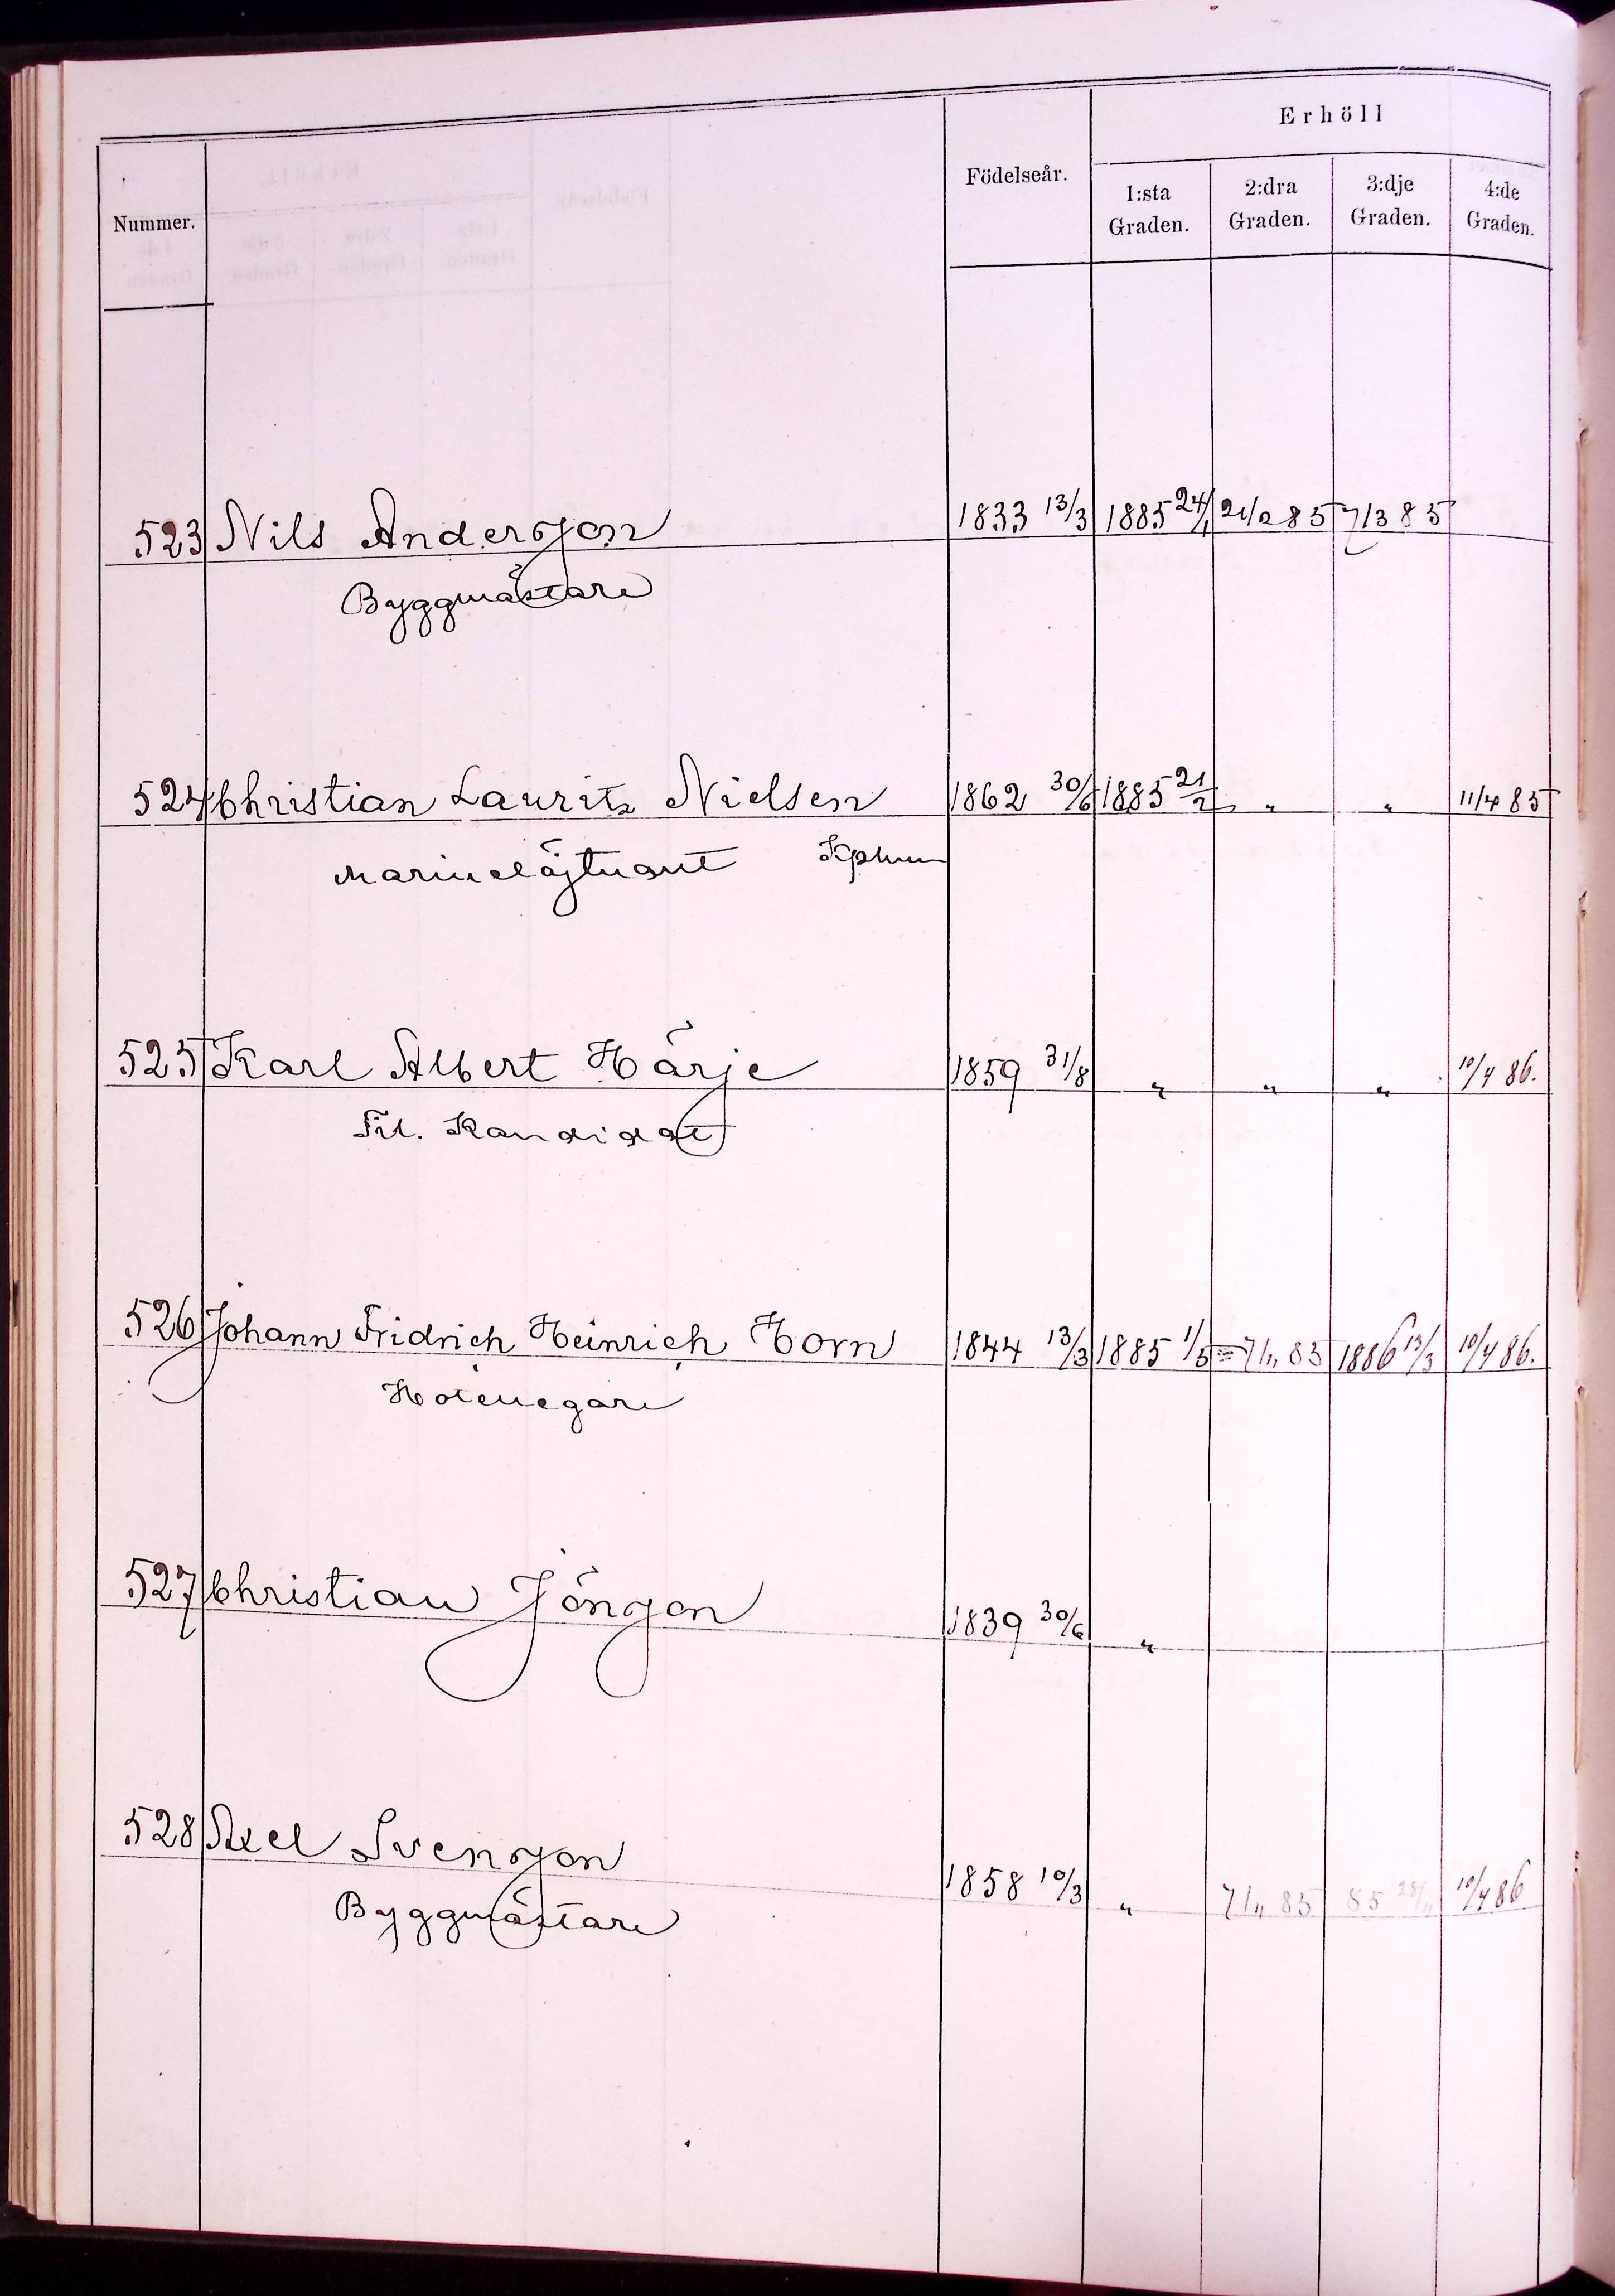 Nummer.
Födelseår.
Erhöll
1:sta Graden.
2:dra Graden.
3:dje Graden.
4:de Graden.
523 Nils Andersson 1833 13/3 1885 24/1 21/2 85 7/3 85
Byggmästare
524 Christian Lauritz Nielsen 1862 30/6 1885 21/2 " " 11/4 85
Marinelöjtnant
525 Karl Albert Härje 1859 31/8 " " " 10/4 86.
Fil. Kandidat
526 Johann Fridrich Heinrich Horn 1844 13/3 1885 1/5 7/11 85 1886 13/3 10/4 86.
527 Christian Jönson 1839 30/6 "
528 Axel Svensson 1858 10/3 " 7/11 85 85 28/11 10/4 86
Byggmästare